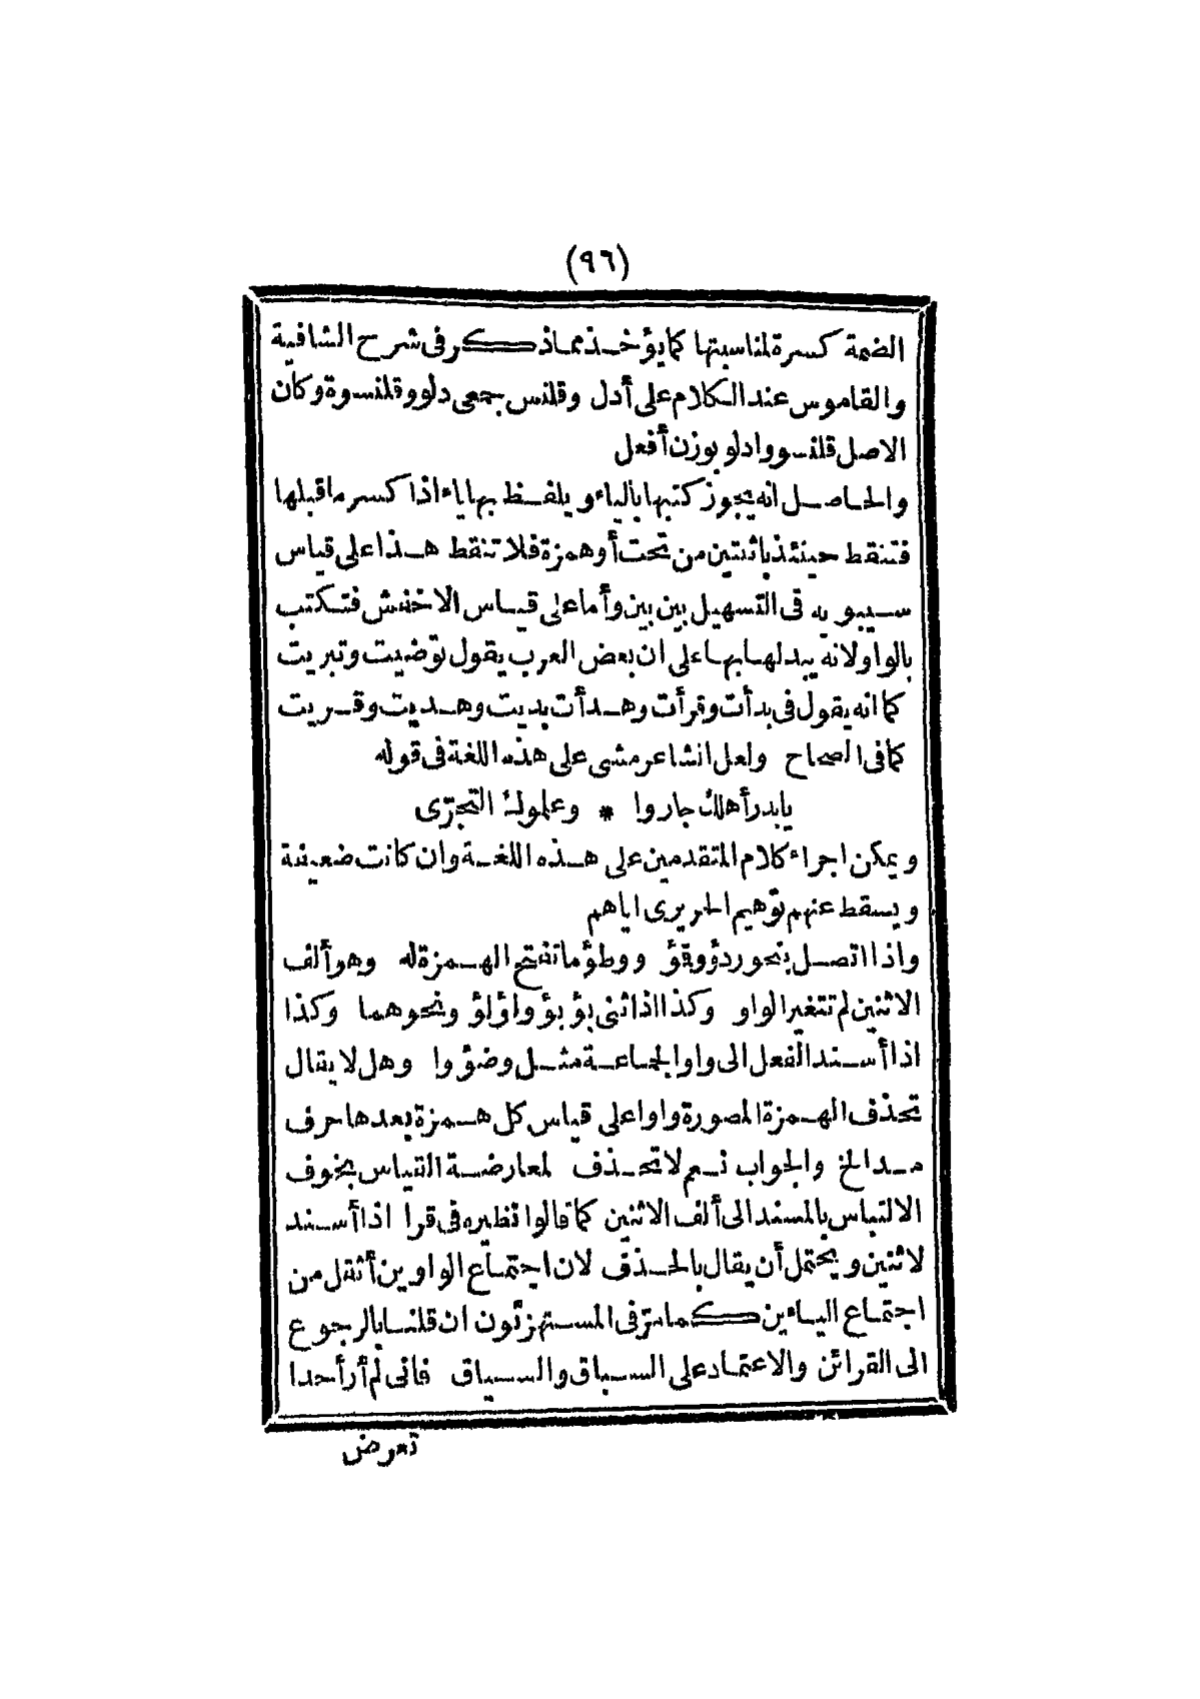 (٩٦)
الضمة كسرة لمناسبتها كما يؤخذ مما ذكر فى شرح الشافية
والقاموس عند الكلام على أدل وقلنس جمعى دلو وقلنسوة وكان
الاصل قلنسو وادلو بوزن أفعل
والحاصل انه يجوز كتبها بالياء ويلفظ بها ياء اذا كسر ما قبلها
فتنقط حينئذ باثنتين من تحت أو همزة فلا تنقط هذا على قياس
سيبويه فى التسهيل بين بين وأما على قياس الاخفش فتكتب
بالواو لانه يبدلها بها على ان بعض العرب يقول توضيت وتبريت
كما انه يقول فى بدأت وقرأت وهدأت بديت وهديت وقريت
كما فى الصحاح ولعل الشاعر مشى على هذه اللغة فى قوله
يا بدر أهلك جاروا * وعلموك التجرّى
ويمكن اجراء كلام المتقدمين على هذه اللغة وان كانت ضعيفة
ويسقط عنهم توهيم الحريرى اياهم
واذا اتصل بنحو ردؤ وقؤ ووطؤ ما تفتح الهمزة له وهو ألف
الاثنين لم تتغير الواو وكذا اذا ثنى بؤبؤ ولؤلؤ ونحوهما وكذا
اذا أسند الفعل الى واو الجماعة مثل وضؤوا وهل لا يقال
تحذف الهمزة المصورة واوا على قياس كل همزة بعدها حرف
مد الخ والجواب نعم لا تحذف لمعارضة القياس بخوف
الالتباس بالمسند الى ألف الاثنين كما قالوا نظيره فى قرأ اذا أسند
لاثنين ويحتمل أن يقال بالحذف لان اجتماع الواوين أثقل من
اجتماع الياءين كما مرّ فى المستهزئون ان قلنا بالرجوع
الى القرائن والاعتماد على السباق والسياق فانى لم أر أحدا
تعرض